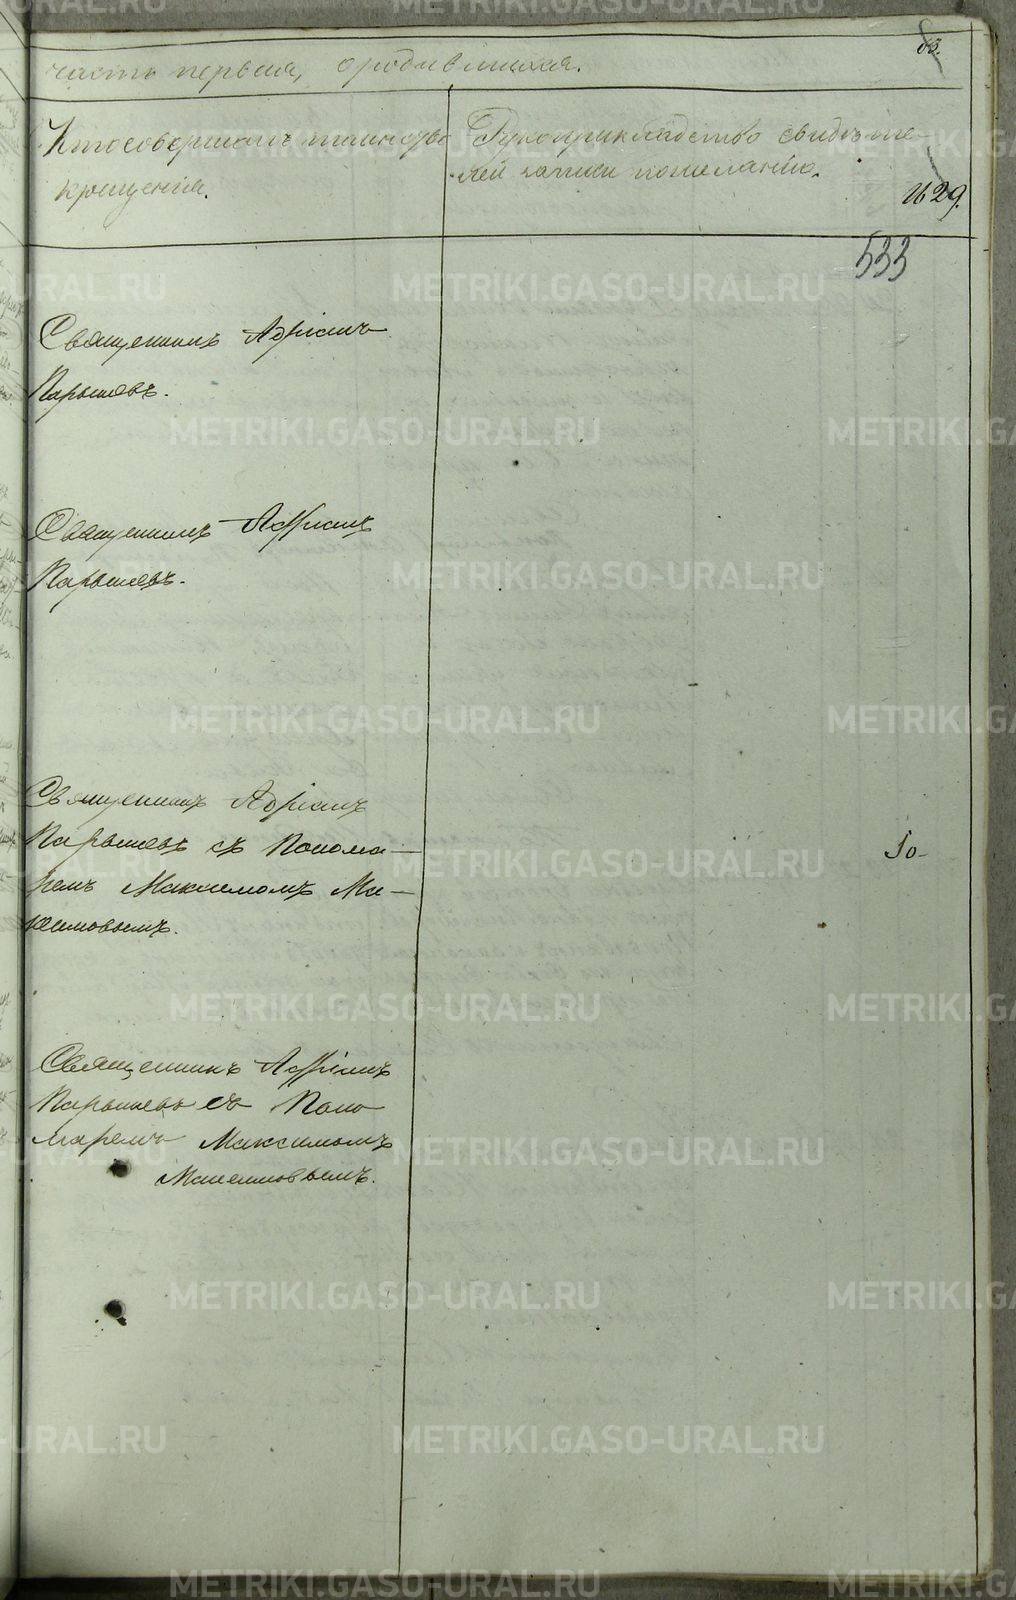 часть первая, о родившихся.
83.
Кто совершалъ таинство
крещенія.
Рукоприкладство свидѣте-
лей записи по желанію.
1629.
533
Священникъ Адріанъ
Парышевъ.
Священникъ Адріанъ
Парышевъ.
Священникъ Адріанъ
Парышевъ съ Понома-
ремъ Максимомъ Ма-
ксимовымъ.
10-
Священникъ Адріанъ
Парышевъ съ Поно
маремъ Максимомъ
Максимовымъ.
METRIKI.GASO-URAL.RU